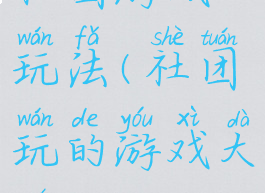 wán fǎ shè tuán
玩法(社团
wán de yóu xì dà
玩的游戏大